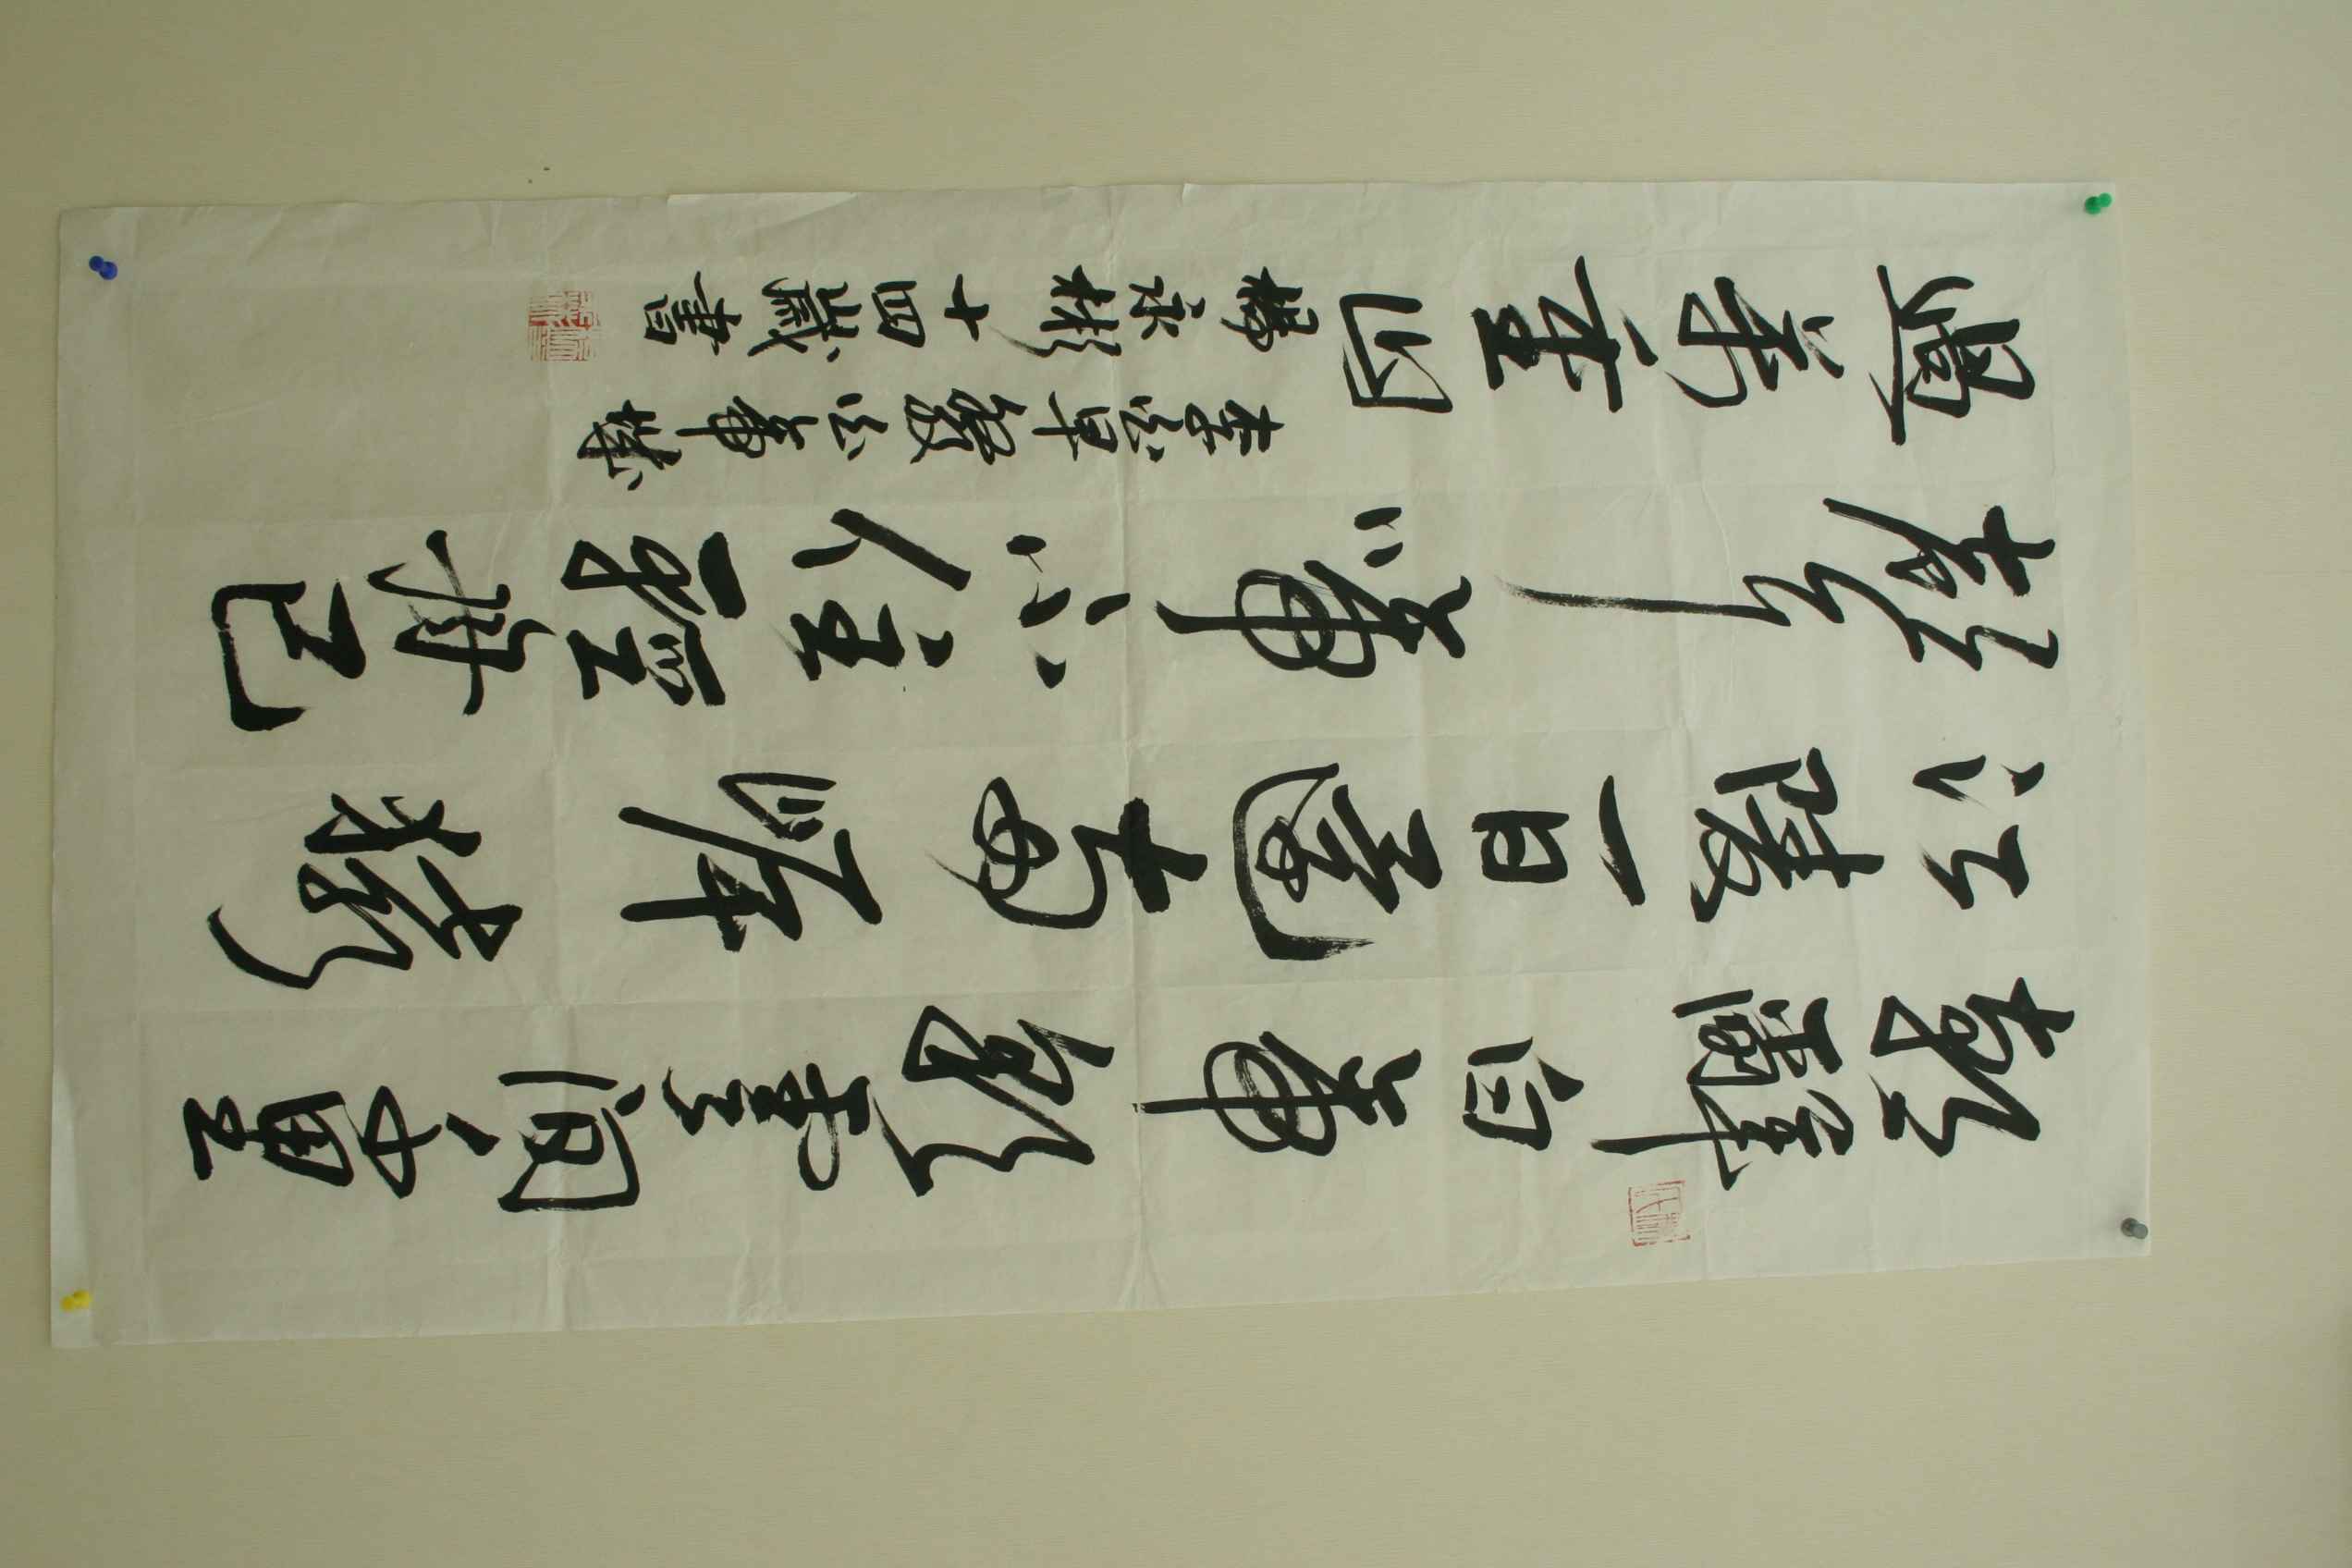 朝辭白帝彩雲間千里
江陵一日還兩岸猿
聲啼不住輕舟已
過萬重山
李白早發白帝城
楊永彬十四歲書